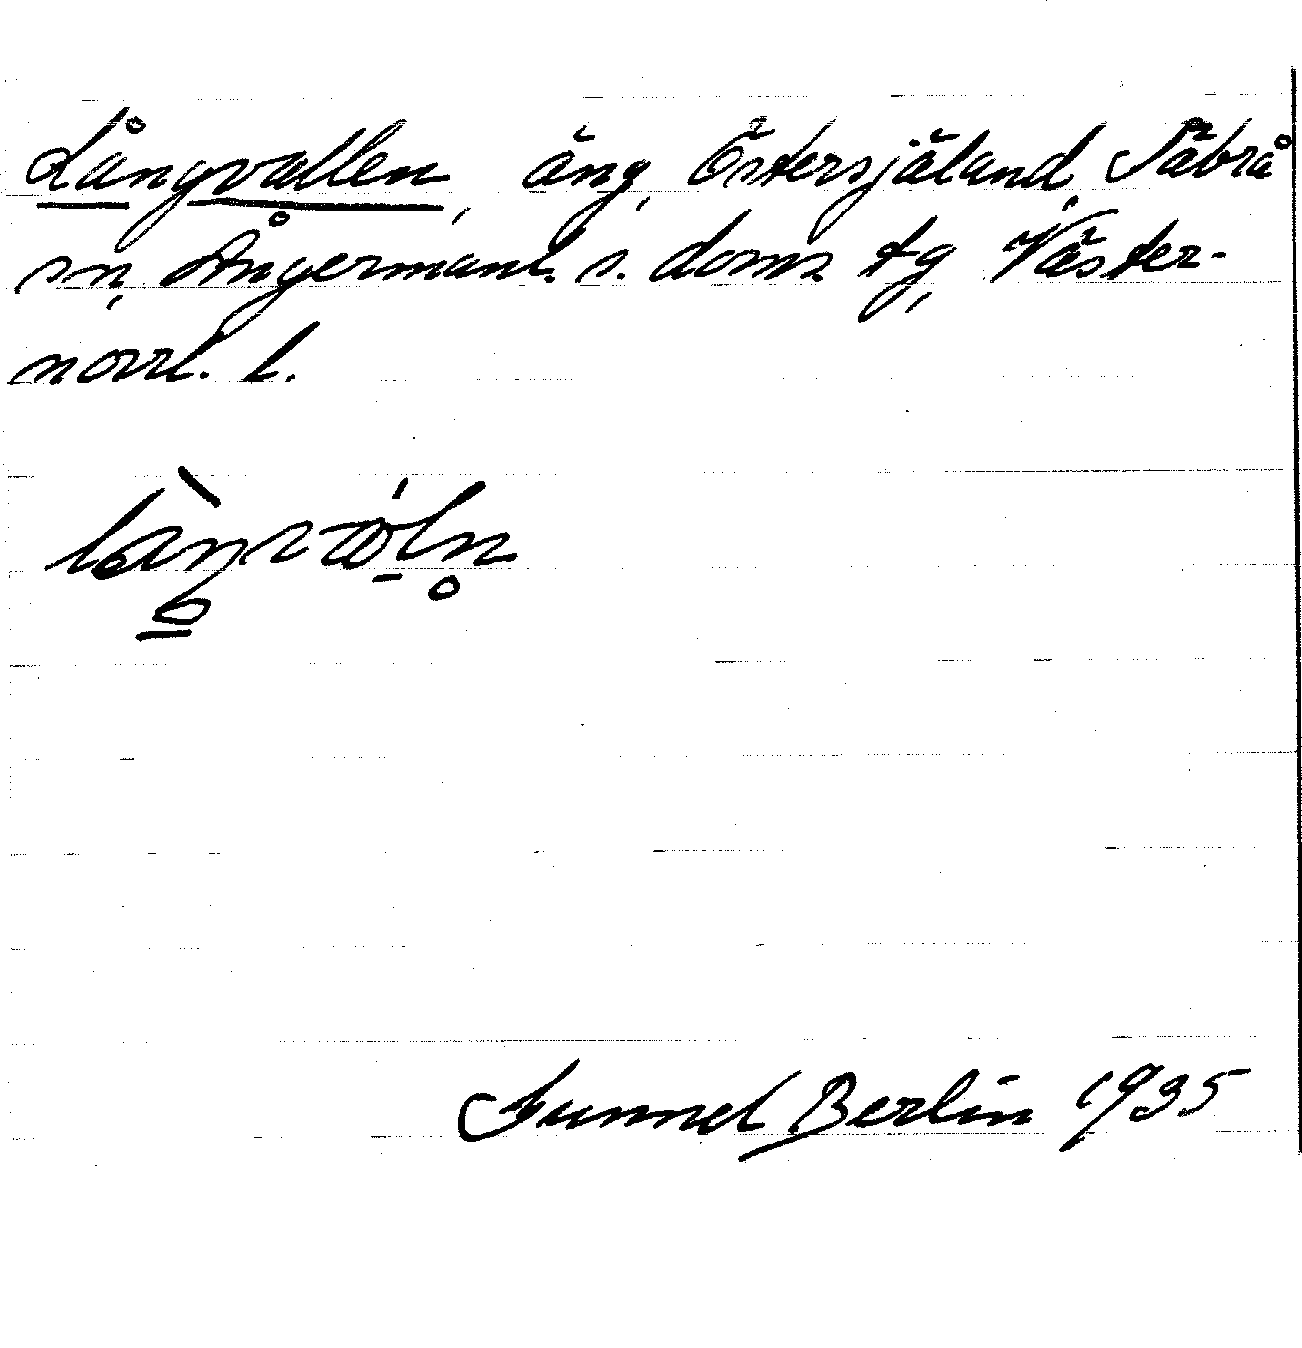 Långvallen, äng, Östersjäland, Säbrå
sn, Ångermanl. s. doms tg, Väster-
norrl. l.
Gunnel Berlin 1935